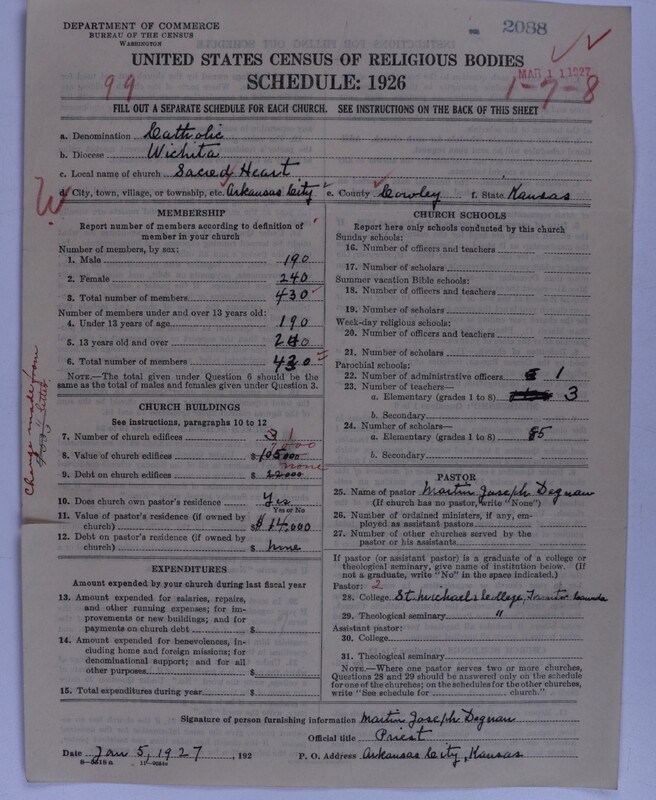 DEPARTMENT OF COMMERCE
BUREAU OF THE CENSUS
WASHINGTON
2088
UNITED STATES CENSUS OF RELIGIOUS BODIES
MAR 11 1927
SCHEDULE: 1926
99
1-7-8
FILL OUT A SEPARATE SCHEDULE FOR EACH CHURCH. SEE INSTRUCTIONS ON THE BACK OF THIS SHEET
a. Denomination Catholic
b. Diocese Wichita
c. Local name of church Sacred Heart
d. City, town, village, or township, etc. Arkansas City e. County Cowley f. State Kansas
MEMBERSHIP
Report number of members according to definition of
member in your church
Number of members, by sex:
1. Male 190
2. Female 240
3. Total number of members 430
Number of members under and over 13 years old:
4. Under 13 years of age 190
5. 13 years old and over 240
6. Total number of members 430
NOTE.—The total given under Question 6 should be the
same as the total of males and females given under Question 3.
Change made from
letter
CHURCH BUILDINGS
See instructions, paragraphs 10 to 12
7. Number of church edifices 3 1
8. Value of church edifices $ 105000
9. Debt on church edifices $ 22000 none
10. Does church own pastor's residence Yes
Yes or No
11. Value of pastor's residence (if owned by
church) $ 14.000
12. Debt on pastor's residence (if owned by
church) $ none
EXPENDITURES
Amount expended by your church during last fiscal year
13. Amount expended for salaries, repairs,
and other running expenses; for im-
provements or new buildings; and for
payments on church debt $
14. Amount expended for benevolences, in-
cluding home and foreign missions; for
denominational support; and for all
other purposes $
15. Total expenditures during year $
CHURCH SCHOOLS
Report here only schools conducted by this church
Sunday schools:
16. Number of officers and teachers
17. Number of scholars
Summer vacation Bible schools:
18. Number of officers and teachers
19. Number of scholars
Week-day religious schools:
20. Number of officers and teachers
21. Number of scholars
Parochial schools:
22. Number of administrative officers 1
23. Number of teachers—
a. Elementary (grades 1 to 8) 3
b. Secondary
24. Number of scholars—
a. Elementary (grades 1 to 8) 85
b. Secondary
PASTOR
25. Name of pastor Martin Joseph Degnan
(If church has no pastor, write "None")
26. Number of ordained ministers, if any, em-
ployed as assistant pastors
27. Number of other churches served by the
pastor or his assistants
If pastor (or assistant pastor) is a graduate of a college or
theological seminary, give name of institution below. (If
not a graduate, write "No" in the space indicated.)
Pastor: 2
28. College St. Michaels College, Toronto Canada
29. Theological seminary "
Assistant pastor:
30. College
31. Theological seminary
NOTE.—Where one pastor serves two or more churches,
Questions 28 and 29 should be answered only on the schedule
for one of the churches; on the schedules for the other churches,
write "See schedule for church."
Signature of person furnishing information Martin Joseph Degnan
Official title Priest
Date Jan 5, 1927, 192 P. O. Address Arkansas City, Kansas